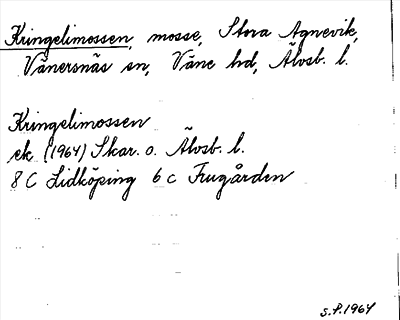 Kringelimossen, mosse, Stora Agnevik,
Vänersnäs sn, Väne hd, Älvsb. l.
Kringelimossen
ek (1964) Skar. o. Älvsb. l.
8 C Lidköping 6 c Frugården
S.P. 1964